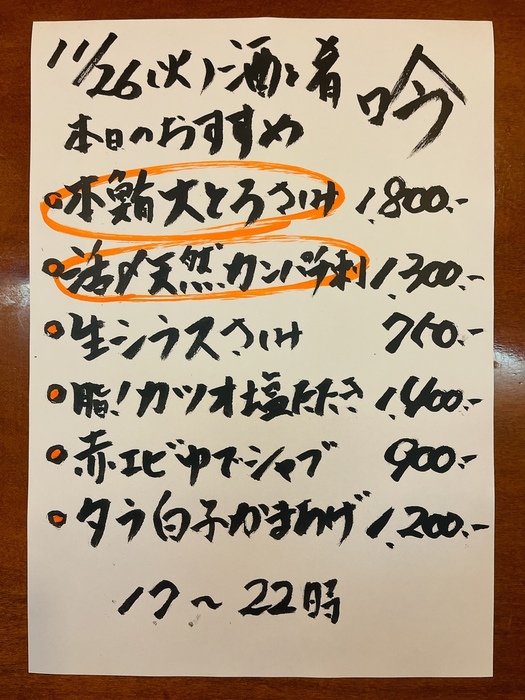 11/26(火)酒と肴 吟
本日のおすすめ
本鮪大とろさしみ 1,800.-
活〆天然カンパチ刺 1,300.-
生シラスさしみ 760.-
脂!カツオ塩たたき 1,400.-
赤エビゆでシャブ 900.-
タラ白子かまあげ 1,200.-
17〜22時